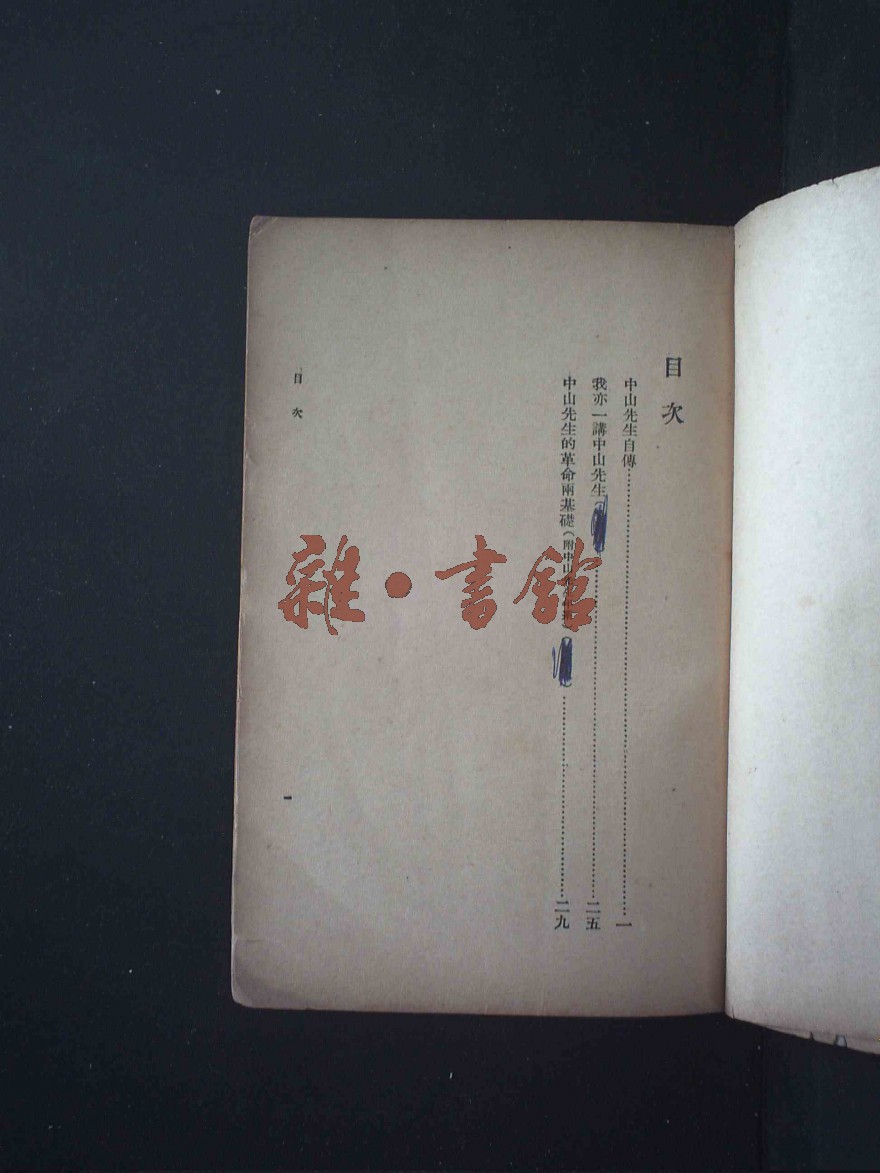 目次
中山先生自傳……一
我亦一講中山先生……二五
中山先生的革命兩基礎（附中山先生……二九
目次
一
雜・書館